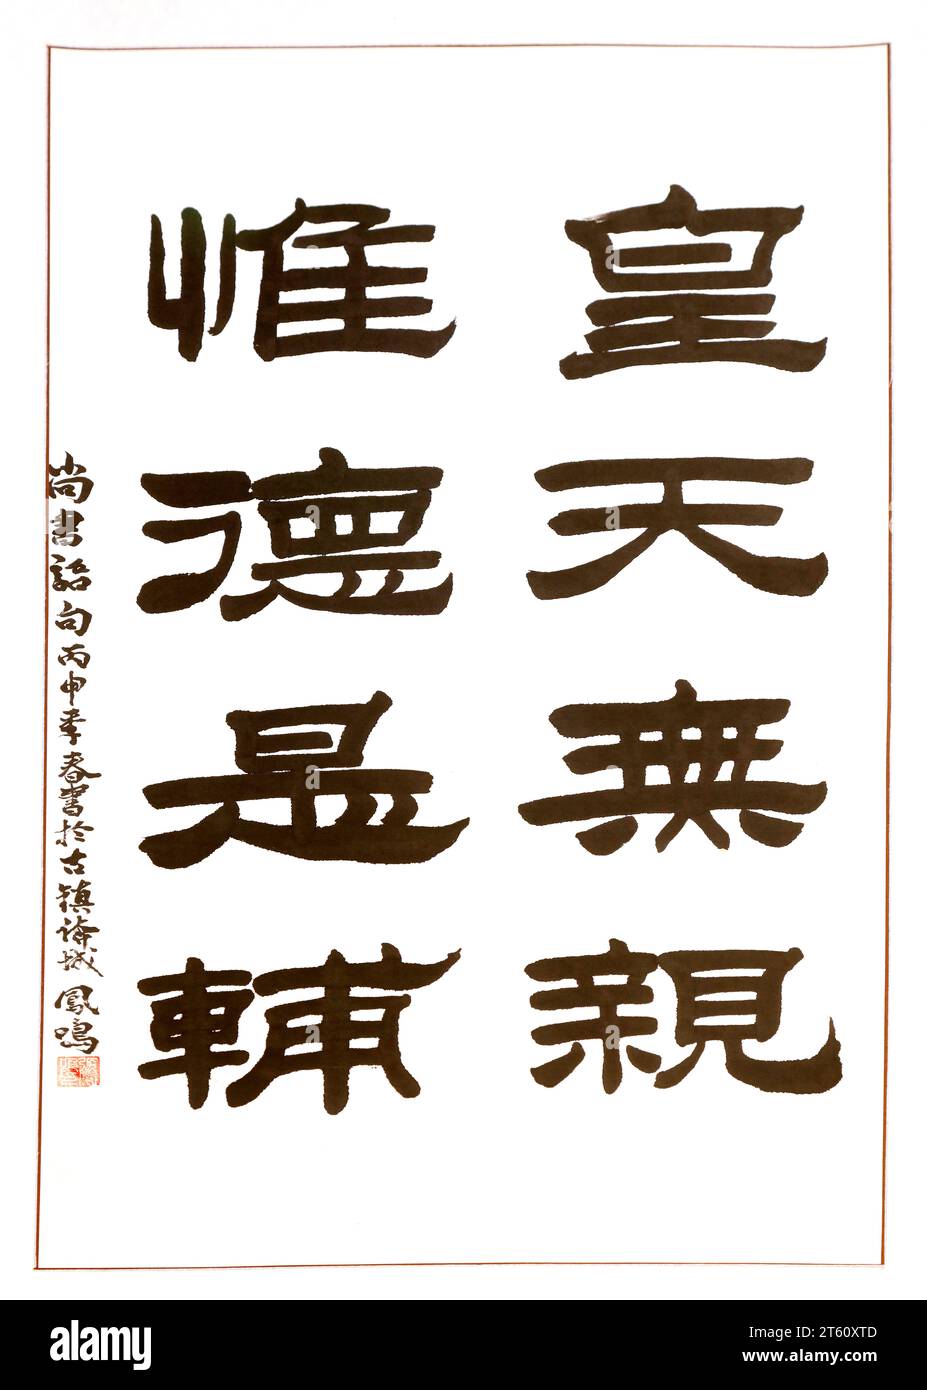 皇天無親
惟德是輔
尚書語句丙申季春書於古鎮諭城 鳳鳴
alamy
Image ID: 2T60XTD
www.alamy.com